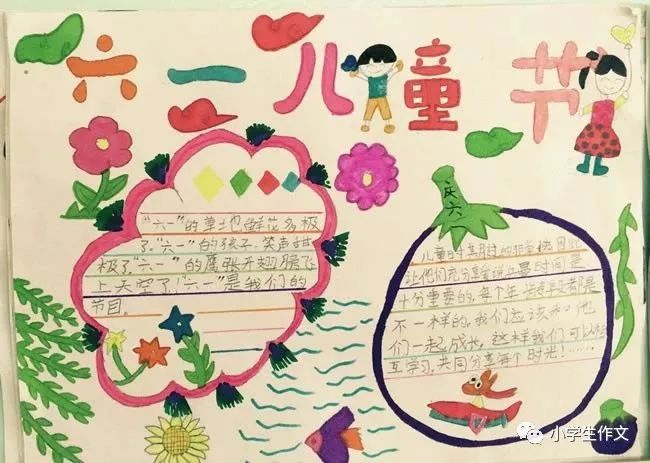 六一儿童节
"六一"的草地鲜花多极
了。"六一"的孩子，笑声甜
极了。"六一"的鹰张开翅膀飞
上天空了！"六一"是我们的
节目。
庆六一
儿童时期时的非常快因此
让他们充分享受说上是时间是
十分重要的，每个年都是
不一样的，我们应该和他
们一起成长，这样我们可以相
互学习，共同分享每个时光！……
小学生作文